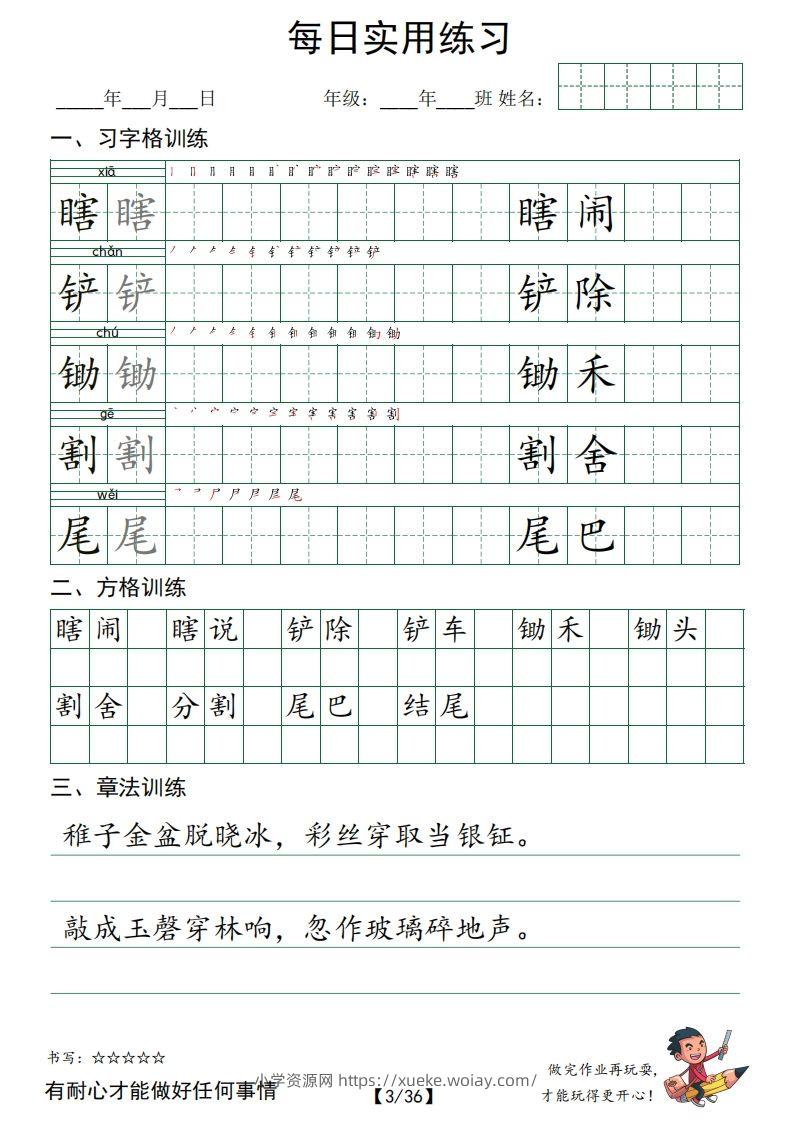 每日实用练习
_____年___月___日 年级：____年____班 姓名：
一、习字格训练
xiā
瞎 瞎 瞎 闹
chǎn
铲 铲 铲 除
chú
锄 锄 锄 禾
gē
割 割 割 舍
wěi
尾 尾 尾 巴
二、方格训练
瞎 闹 瞎 说 铲 除 铲 车 锄 禾 锄 头
割 舍 分 割 尾 巴 结 尾
三、章法训练
稚子金盆脱晓冰，彩丝穿取当银钲。
敲成玉磬穿林响，忽作玻璃碎地声。
书写：☆☆☆☆☆
有耐心才能做好任何事情
小学资源网 https://xueke.woiay.com/
【3/36】
做完作业再玩耍，
才能玩得更开心！